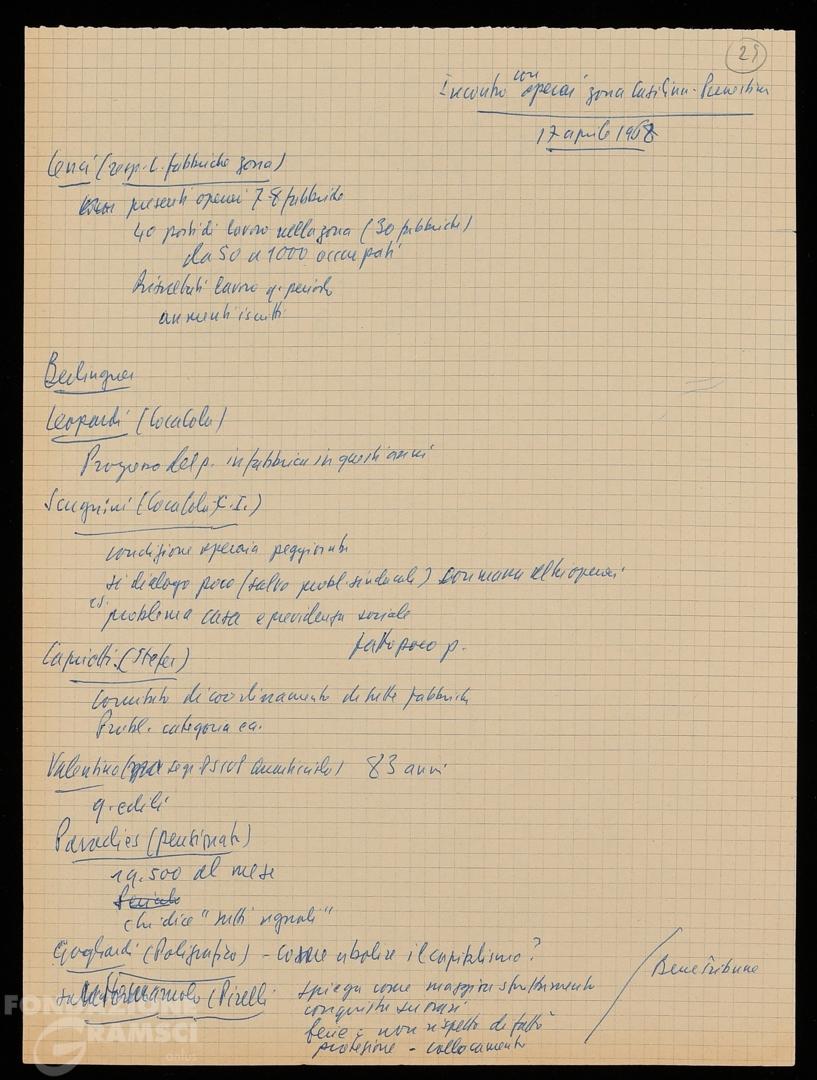 29
Incontro con operai zona Casilina-Prenestina
17 aprile 1968
Cenci (resp. l. fabbriche zona)
presenti operai 7-8 fabbriche
40 posti di lavoro nella zona (30 fabbriche)
da 50 a 1000 occupati
Risultati lavoro q. periodo
aumenti iscritti
Berlinguer
Leopardi (CocaCola)
Progresso del p. in fabbrica in questi anni
(CocaCola C.I.)
condizione operaia peggiorata
si dialoga poco (salvo probl. sindacali) con massa altri operai
es. problema casa e previdenza sociale
fatto poco p.
(Stefer)
comitato di coordinamento di tutte fabbriche
Probl. categoria ca.
Valentino ( segr. 83 anni
q. edili
Paradies (pensionato)
19.500 al mese
chi dice "tutti uguali"
Gagliardi (Poligrafico) - come abolire il capitalismo?
(Pirelli spiega come maggior sfruttamento
conquiste
ferie - non rispetto di fatto
- collocamento
Bene Tribune
FONDAZIONE
GRAMSCI
onlus